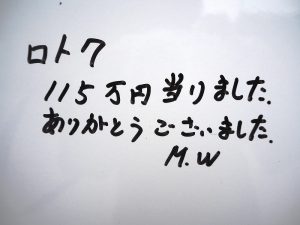 ロト7
115万円当りました.
ありがとうございました.
M.W